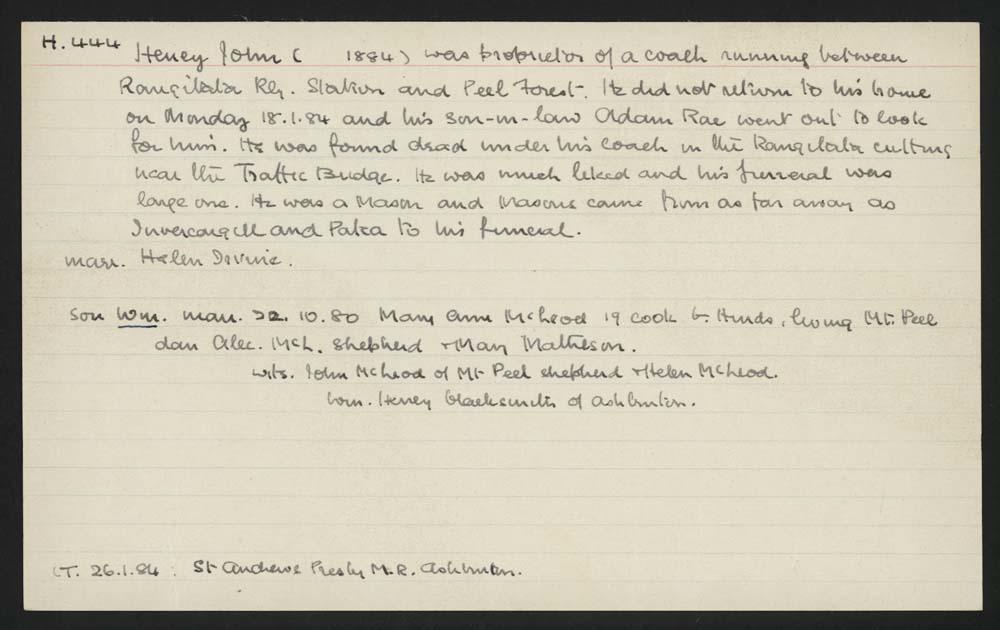 H.444 Heney John (     1884) was proprietor of a coach running between
Rangitata Rly. Station and Peel Forest. He did not return to his home
on Monday 18.1.84 and his son-in-law Adam Rae went out to look
for him. He was found dead under his coach in the Rangitata cutting
near the Traffic Bridge. He was much liked and his funeral was
large one. He was a Mason and Masons came from as far away as
Invercargill and Patea to his funeral.
marr. Helen Irvine.
son Wm. marr. 22.10.80 Mary Ann McLeod 19 cook b. Hinds, living Mt. Peel
dau Alec. McL. shepherd + Mary Matheson.
wits. John McLeod of Mt Peel shepherd + Helen McLeod.
Wm. Heney blacksmith of Ashburton.
LT. 26.1.84 : St Andrews Presby M.R. Ashburton.